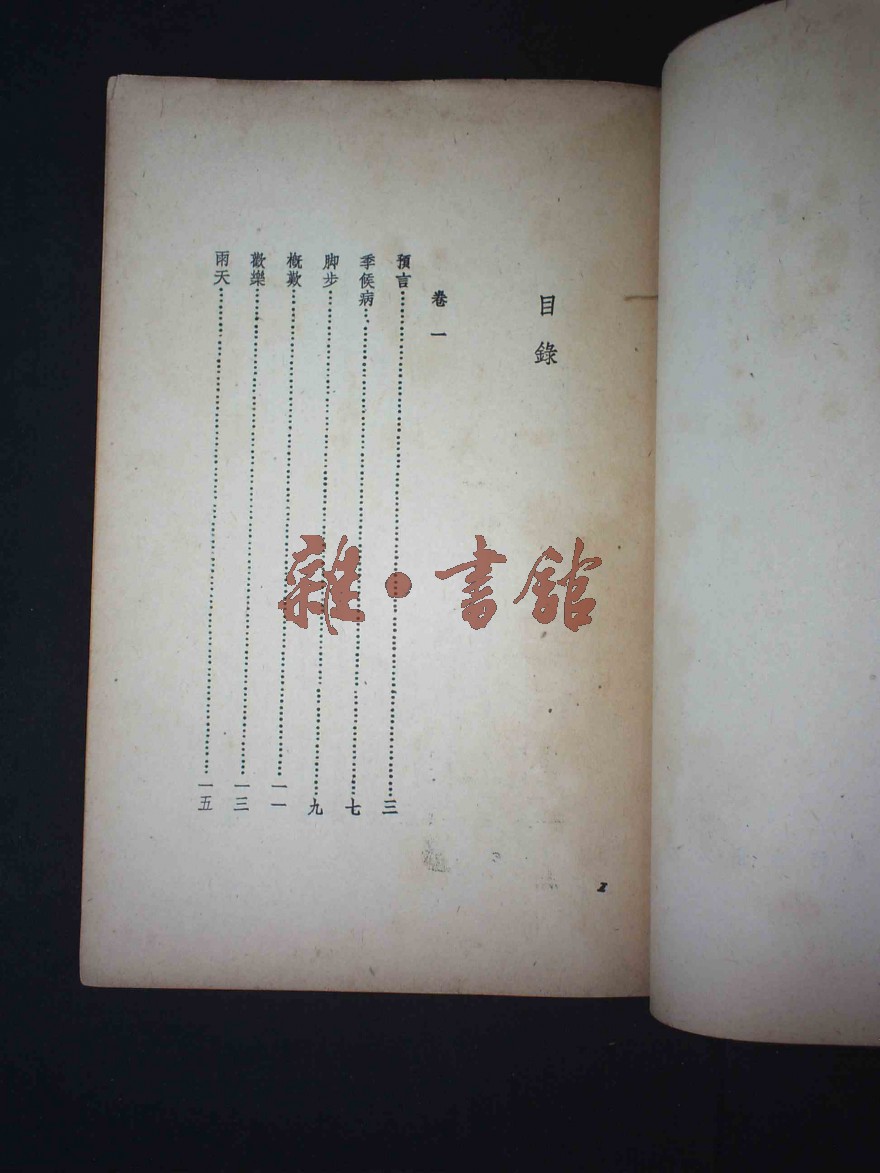 目錄
卷一
預言……三
季候病……七
脚步……九
慨歎……一一
歡樂……一三
雨天……一五
雜·書館